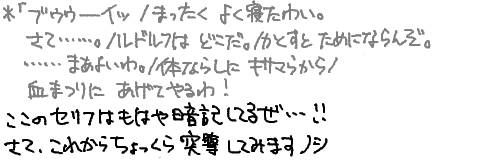 *「ブウゥ──イッ/まったく よく寝たわい。
さて……。/ルドルフは どこだ。/かくすと ためにならんぞ。
……まあよいわ。/体ならしに キサマらから/
血まつりに あげてやるわ!
ここのセリフはもはや暗記してるぜ…!!
さて、これからちょっくら突撃してみますノシ